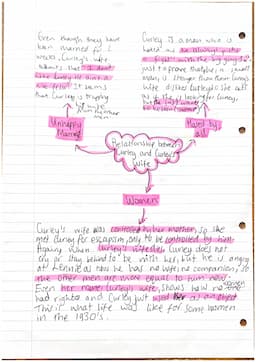 Even though they have
been married for 2
weeks, Curley's wife
admits that "I dont
like Curley. He ain't a
nice fella". It seems
that Curley is
wife
Curley is a man who is
as
fight with the big guys"
just to prove that
man is stronger than them. Curley's
wife dislikes Curley so she
as if she is looking for Curley,
Unhappy
Marriage
Hated by
all
Relationship between
Curley and Curley's
Wife
Women
Curley's wife was controlled by her mother so she
met Curley for escapism, only to be controlled by him
again. When Curley's wife dies Curley does not
cry or stay behind to be with her, but he is angry
at Lennie as now he has no wife no companion, so
the other men are more equal to him now.
Even her name Curley's wife, shows how no women
had rights and Curley just used her as an object
This is what life was like for some women
in the 1930's.